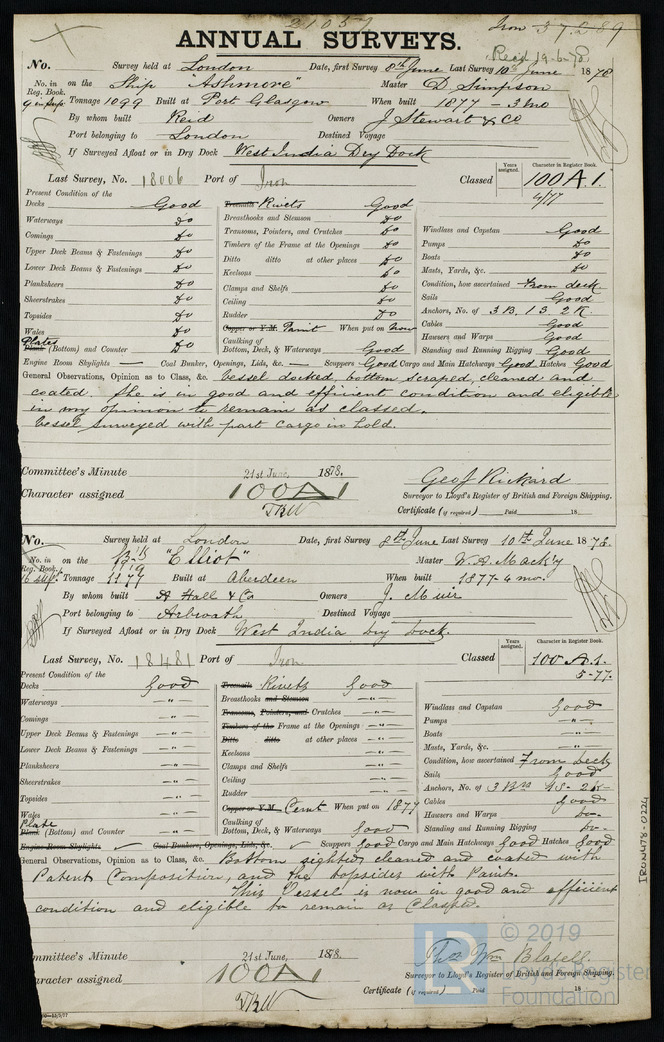 21057
Iron 37289
ANNUAL SURVEYS.
Recd 19.6.78
No. Survey held at London Date, first Survey 8th June Last Survey 10th June 1878
No. in Reg. Book. on the Ship "Ashmore" Master D. Simpson
9 in Sup Tonnage 1099 Built at Port Glasgow When built 1877 - 3 mo
By whom built Reid Owners J Stewart & Co
Port belonging to London Destined Voyage
If Surveyed Afloat or in Dry Dock West India Dry Dock
Last Survey, No. 18006 Port of Iron Classed Years assigned. Character in Register Book. 100 A.1.
4/77
Present Condition of the
Decks Good Treenails Rivets Good
Waterways Do Breasthooks and Stemson Do Windlass and Capstan Good
Comings Do Transoms, Pointers, and Crutches Do Pumps Do
Upper Deck Beams & Fastenings Do Timbers of the Frame at the Openings Do Boats Do
Lower Deck Beams & Fastenings Do Ditto ditto at other places Do Masts, Yards, &c. Do
Planksheers Do Keelsons Do Condition, how ascertained From deck
Sheerstrakes Do Clamps and Shelfs Do Sails Good
Topsides Do Ceiling Do Anchors, No. of 3 B. 1 S. 2 K.
Wales Do Rudder Do Cables Good
Plates Plank (Bottom) and Counter Do Copper or Y.M. Paint When put on now Hawsers and Warps Good
Caulking of Bottom, Deck, & Waterways Good Standing and Running Rigging Good
Engine Room Skylights — Coal Bunker, Openings, Lids, &c. — Scuppers Good Cargo and Main Hatchways Good Hatches Good
General Observations, Opinion as to Class, &c. Vessel docked, bottom scraped, cleaned and
coated. She is in good and efficient condition and eligible
in my opinion to remain as classed.
Vessel surveyed with part cargo in hold.
Committee's Minute 21st June, 1878.
Character assigned 100A1
Geo J Rickard
Surveyor to Lloyd's Register of British and Foreign Shipping.
Certificate (if required) Paid 18
No. Survey held at London Date, first Survey 8th June Last Survey 10th June 1878.
No. in Reg. Book. on the "Elliot" Master W. A. Mack'y
16 Supt Tonnage 1177 Built at Aberdeen When built 1877-4 mo.
By whom built A Hall & Co Owners J. Muir
Port belonging to Arbroath Destined Voyage
If Surveyed Afloat or in Dry Dock West India Dry Dock.
Last Survey, No. 18481 Port of Iron Classed Years assigned. Character in Register Book. 100 A.1.
5-77.
Present Condition of the
Decks Good Treenails Rivets Good
Waterways -"- Breasthooks and Stemson -"- Windlass and Capstan Good
Comings -"- Transoms, Pointers, and Crutches -"- Pumps -"-
Upper Deck Beams & Fastenings -"- Timbers of the Frame at the Openings -"- Boats -"-
Lower Deck Beams & Fastenings -"- Ditto ditto at other places -"- Masts, Yards, &c. -"-
Planksheers -"- Keelsons -"- Condition, how ascertained From Deck
Sheerstrakes -"- Clamps and Shelfs -"- Sails Good
Topsides -"- Ceiling -"- Anchors, No. of 3 Brs 1S- 2K-
Wales -"- Rudder -"- Cables Good
Plate Plank (Bottom) and Counter -"- Copper or Y.M. Cemt When put on 1877 Hawsers and Warps Do-
Caulking of Bottom, Deck, & Waterways Good Standing and Running Rigging Do-
Engine Room Skylights Coal Bunkers, Openings, Lids, &c. Scuppers Good Cargo and Main Hatchways Good Hatches Good
General Observations, Opinion as to Class, &c. Bottom sighted, cleaned and coated with
Patent Composition, and the topsides with Paint.
This Vessel is now in good and efficient
condition and eligible to remain as Classed.
ommittee's Minute 21st June, 1878.
aracter assigned 100A1
Thos Wm Blabell.
Surveyor to Lloyd's Register of British and Foreign Shipping.
Certificate (if required) Paid 18
IRON478-0224
© 2019
Lloyd's Register
Foundation